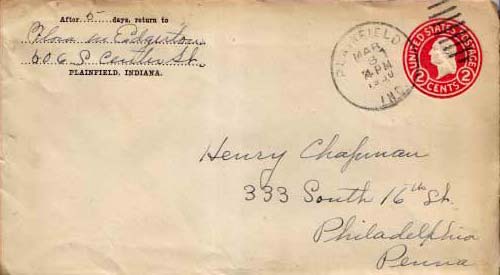 After 5 days, return to
Flora M Edgerton
606 S Center St.
PLAINFIELD, INDIANA.
PLAINFIELD
MAR
3
PM
IND.
UNITED STATES POSTAGE
2 CENTS 2
Henry Chapman
333 South 16th St.
Philadelphia
Penna